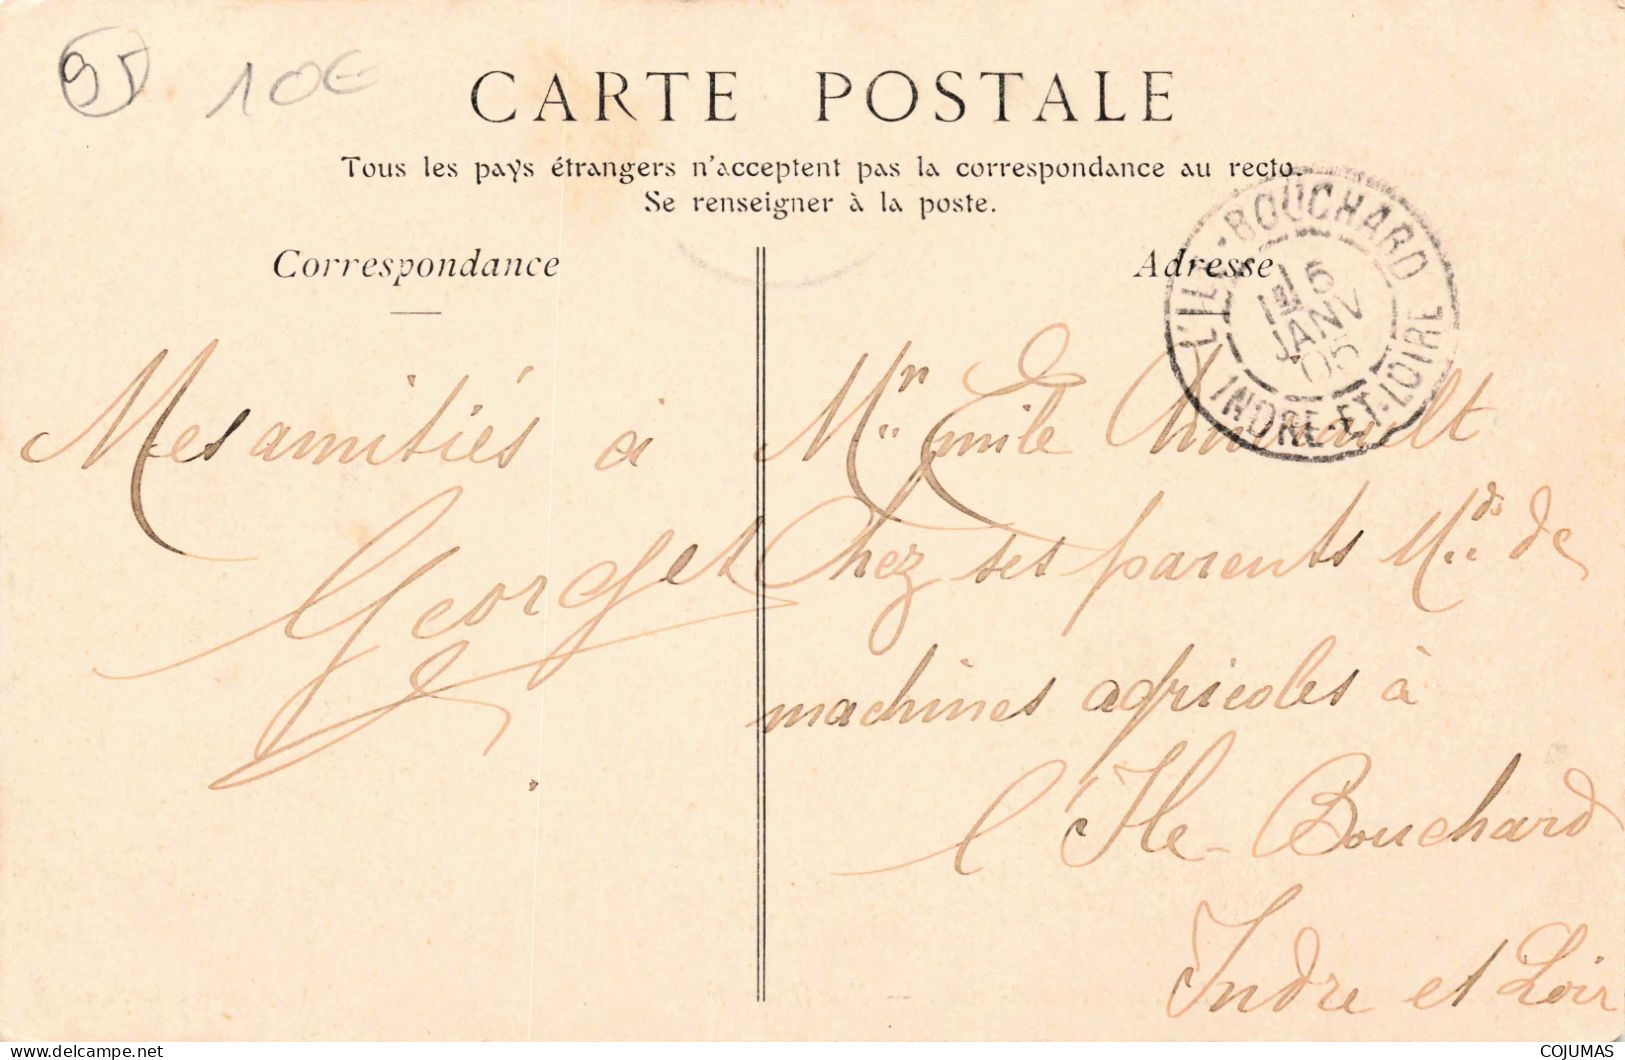 95 10€
CARTE POSTALE
Tous les pays étrangers n'acceptent pas la correspondance au recto.
Se renseigner à la poste.
Correspondance
Adresse
L'ILE-BOUCHARD
15
JANV
05
INDRE-ET-LOIRE
Mes amitiés à
Georget
Mr Emile
Chez ses parents Mds de
machines agricoles à
l'Ile-Bouchard
Indre et Loir
COJUMAS